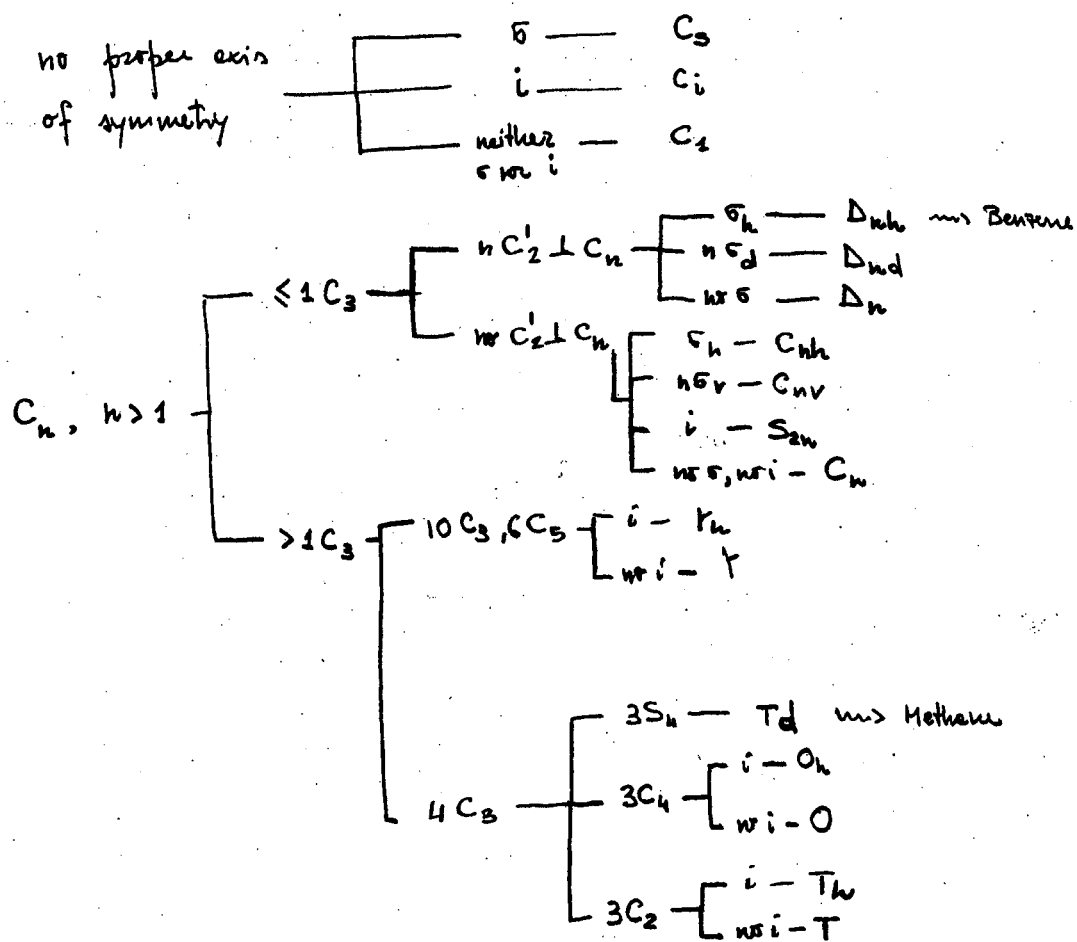 no proper axis
of symmetry
σ — Cₛ
i — Cᵢ
neither
σ nor i — C₁
Cₙ, n > 1
≤ 1 C₃
n C'₂ ⊥ Cₙ
σₕ — Dₙₕ ⇝ Benzene
n σ_d — Dₙ_d
no σ — Dₙ
no C'₂ ⊥ Cₙ
σₕ — Cₙₕ
n σᵥ — Cₙᵥ
i — S₂ₙ
no σ, no i — Cₙ
> 1 C₃
10 C₃, 6 C₅
i — Yₕ
no i — Y
4 C₃
3S₄ — Td ⇝ Methane
3C₄
i — Oₕ
no i — O
3C₂
i — Tₕ
no i — T